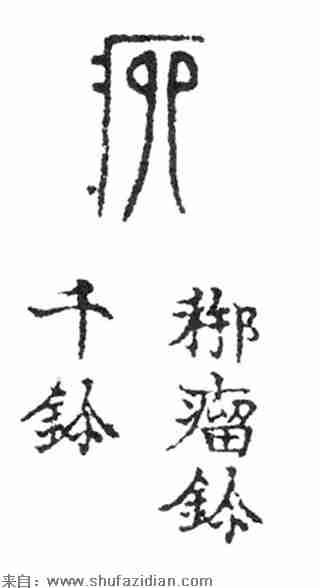 瘤鉨
千鉨
来自：www.shufazidian.com